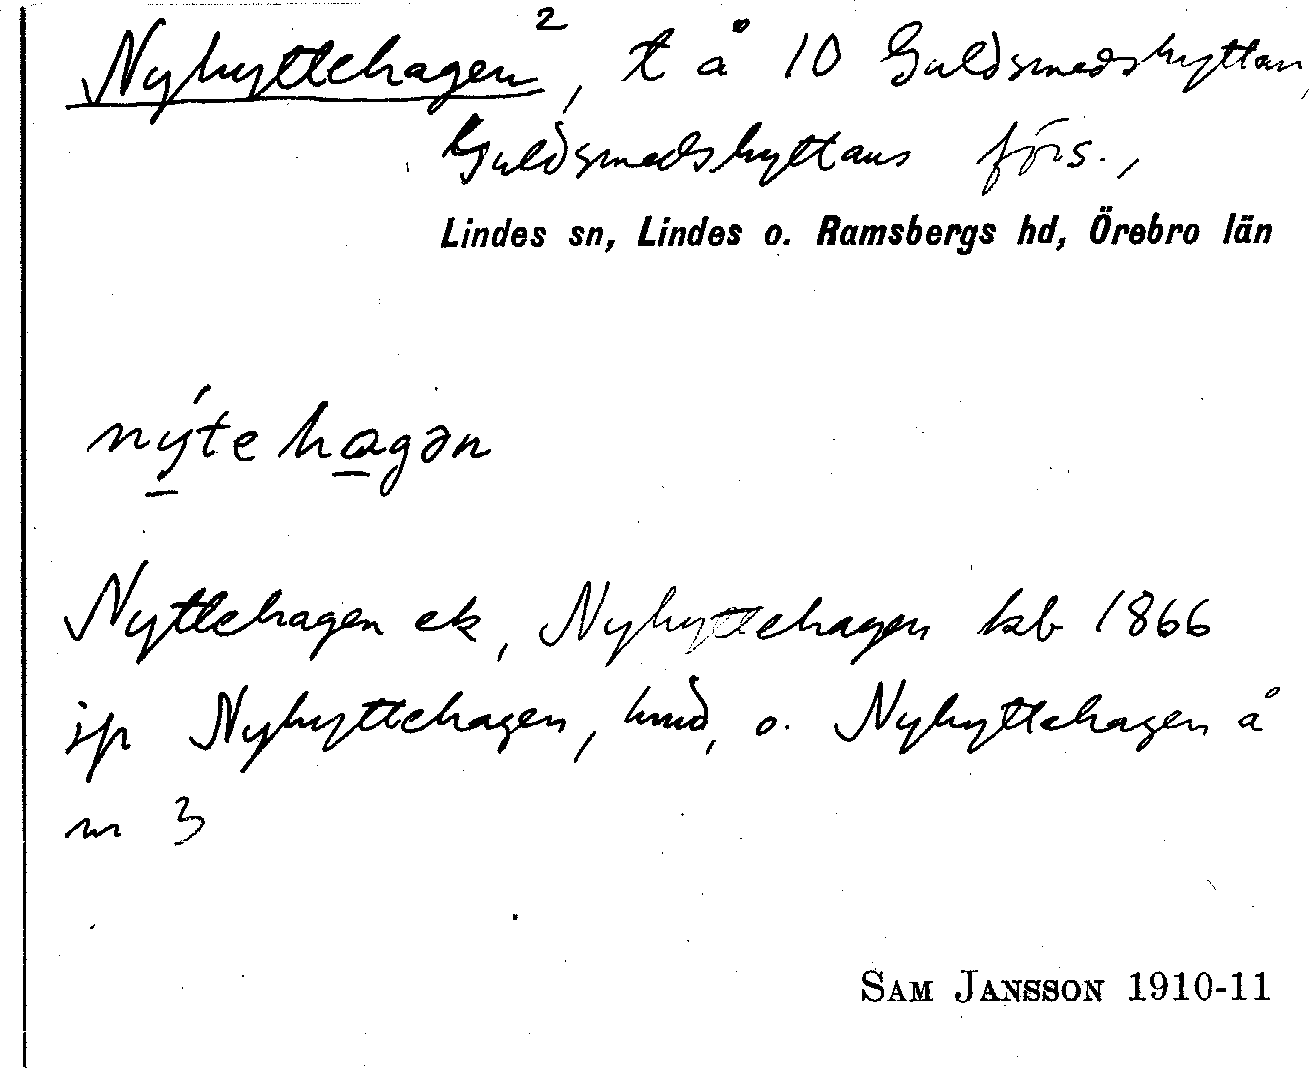 Nyhyttehagen², t å 10 Guldsmedshyttan,
Guldsmedshyttans förs.,
Lindes sn, Lindes o. Ramsbergs hd, Örebro län
nýtehagən
Nyttehagen ek, Nyhyttehagen kb 1866
jp Nyhyttehagen, hmd, o. Nyhyttehagen å
nr 3
SAM JANSSON 1910-11